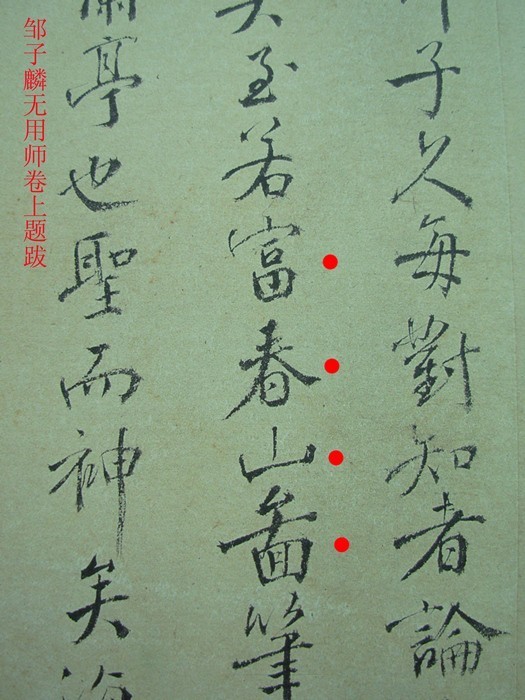 子久每對知者論
矣至若富春山啚筆
蘭亭也聖而神矣海
邹子麟无用师卷上题跋